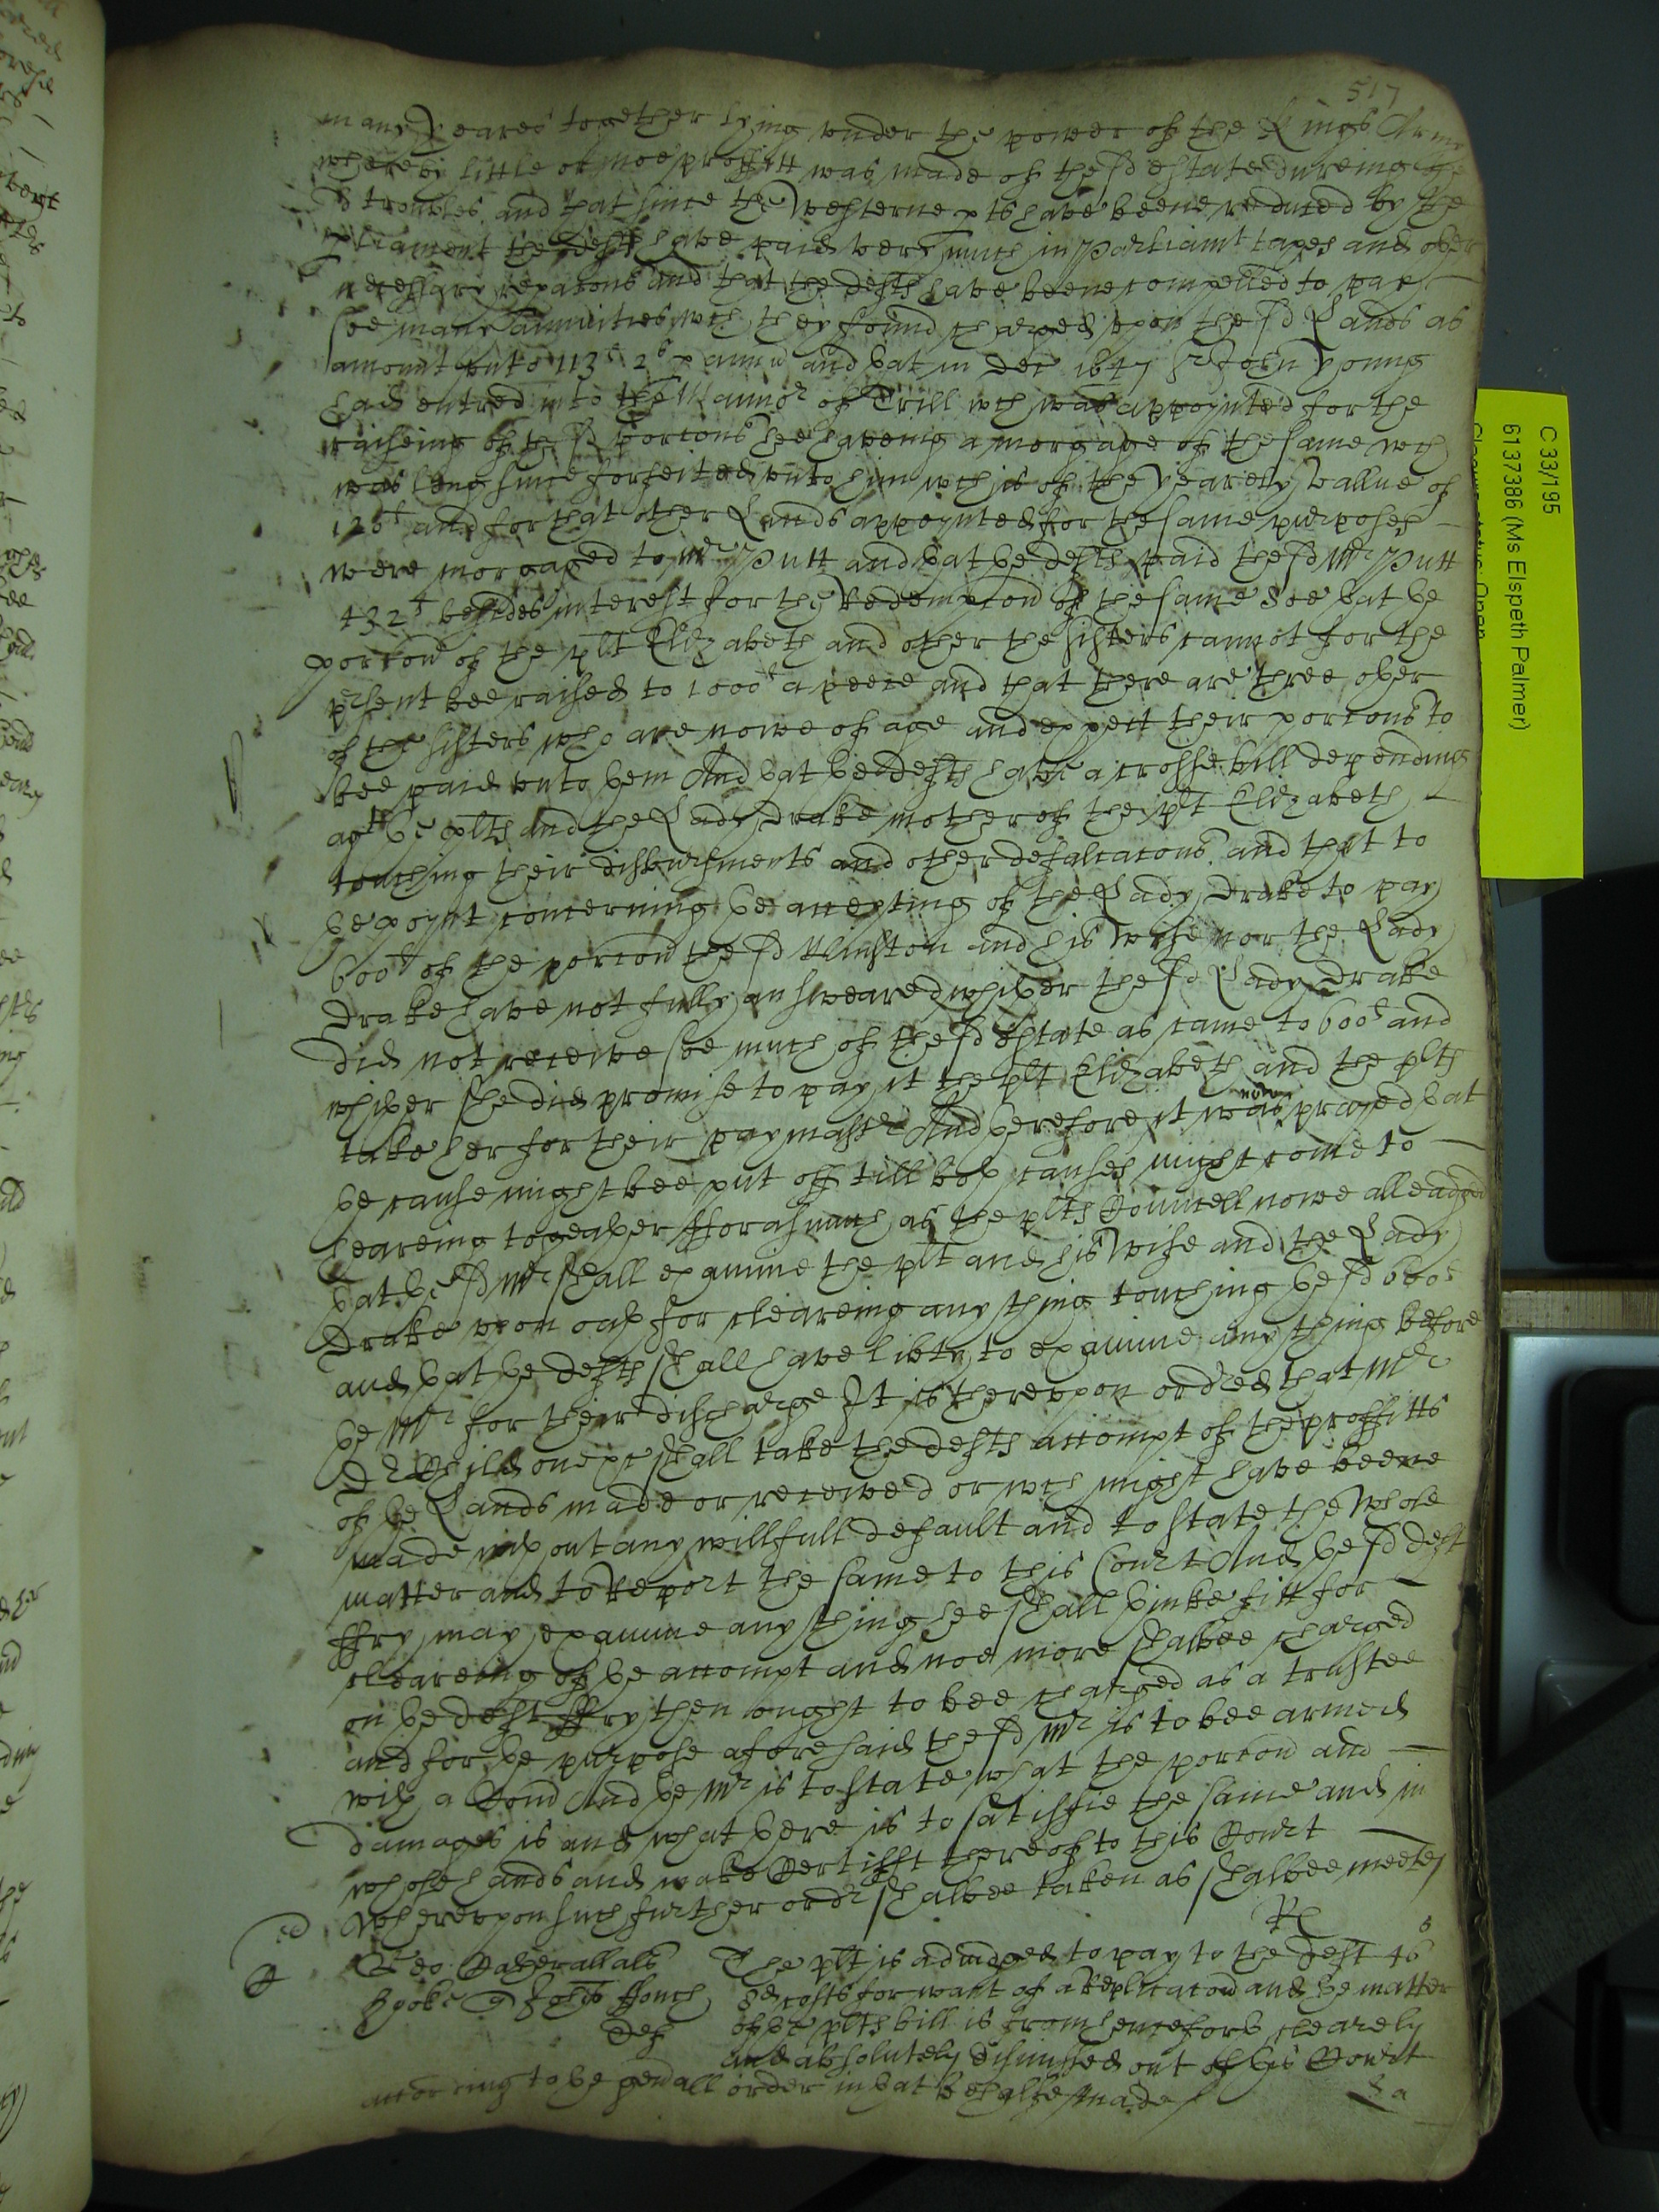 517
many yeares together lying under the power of the Kings Arm
whereby little or noe proffitt was made of the sd estate dureing the
sd troubles and that since the Westerne pts have beene reduced by the
pliament the defts have paid very much in Parliamt taxes and other
necessary repacons and that the defts have beene compelled to pay
soe many annuities wch they found charged upon the sd Lands as
amount unto 113l 2s p annu and that in Dec 1647 Sr John Young
had entred into the Mannor of Trill wch was appoynted for the
raiseing of the sd porcons hee haveing a morgage of the same wch
was long since forfeited unto him wch is of the yearely vallue of
120l and for that other Lands appoynted for the same purposes
were morgaged to Mr Putt and that the defts paid the sd Mr Putt
432l besides interest for the Redempcon of the same Soe that the
porcon of the plt Elizabeth and other the sisters cannot for the
psent bee raised to 1000l a peece and that there are three other
of the sisters who are nowe of age and expect their porcons to
bee paid unto them And that the defts have a crosse bill depending
agt the plts and the Lady Drake mother of the plt Elizabeth
touching their disbursments and other defalcacons and that to
the poynt concerning the accepting of the Lady Drake to pay
600l of the porcon the sd Winston and his Wife nor the Lady
Drake have not fully answeared whither the sd Lady Drake
did not receive soe much of the sd estate as came to 600l and
whither shee did promise to pay it the plt Elizabeth and the plts
take her for their paymastr And therefore it was nowe prayed that
the cause might bee put off till both causes might come to
heareing togeather fforasmuch as the plts Councell nowe alleadged
that the sd Mr shall examine the plt and his Wife and the Lady
Drake upon oath for cleareing any thing touching the sd 600l
and that the defts shall have libty to examine any thing before
the Mr for their discharge It is thereupon ordred that Mr
Dr Child one &c shall take the defts accompt of the proffitts
of the Lands made or received or wch might have beene
made without any willfull default and to state the whole
matter and to Report the same to this Court And the sd deft
ffry may examine any thing hee shall thinke fitt for
cleareing of the accompt and noe more shalbee charged
on the deft ffry then ought to bee charged as a trustee
and for the purpose aforesaid the sd Mr is to bee armed
with a Comd And the Mr is to state what the porcon and
damages is and what there is to satisffie the same and in
whose hands and make Certifft thereof to this Court
Whereupon such further ordr shalbee taken as shalbee meete
Geo: als The plt is adiudged to pay to the deft 46s
8d costs for want of a Replicacon and the matter
Def of the plts bill is from henceforth clearely
and absolutely dismissed out of this Court
according to the genall order in that behalfe made
C 33/195
6137386 (Ms Elspeth Palmer)